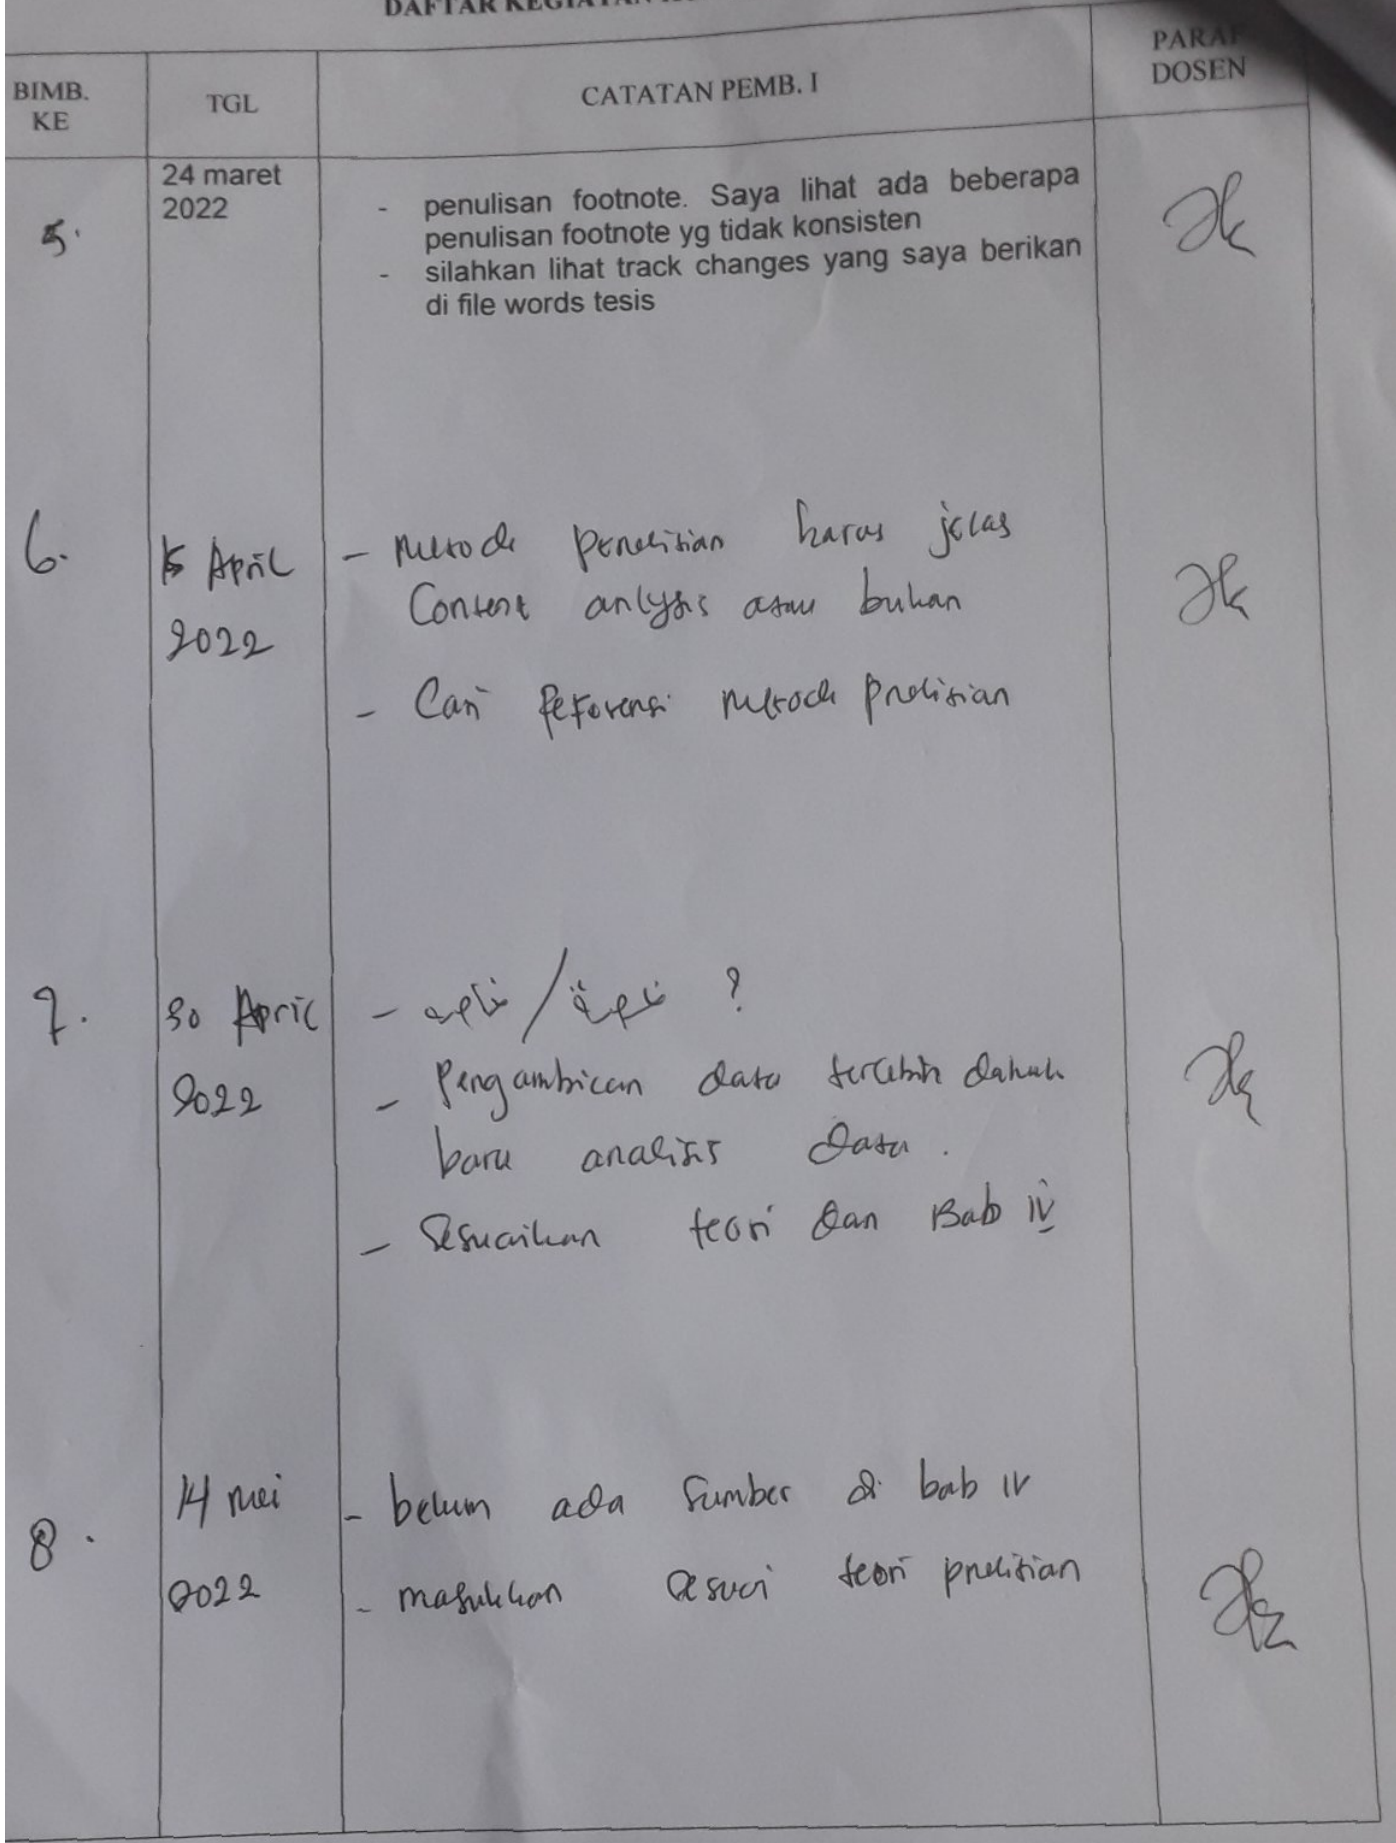 DAFTAR KEGIATAN
BIMB.
KE
TGL
CATATAN PEMB. I
PARAF
DOSEN
5.
24 maret
2022
- penulisan footnote. Saya lihat ada beberapa
penulisan footnote yg tidak konsisten
- silahkan lihat track changes yang saya berikan
di file words tesis
6.
15 April
2022
- Metode penelitian harus jelas
Content anlysis atau bukan
- Cari Referensi metode pnelitian
7.
30 April
2022
- / ?
- Pengambilan data terlebih dahulu
baru analisis data.
- Sesuaikan teori dan Bab IV
8.
14 mei
2022
- belum ada sumber di bab IV
- masukkan sesuai teori pnelitian